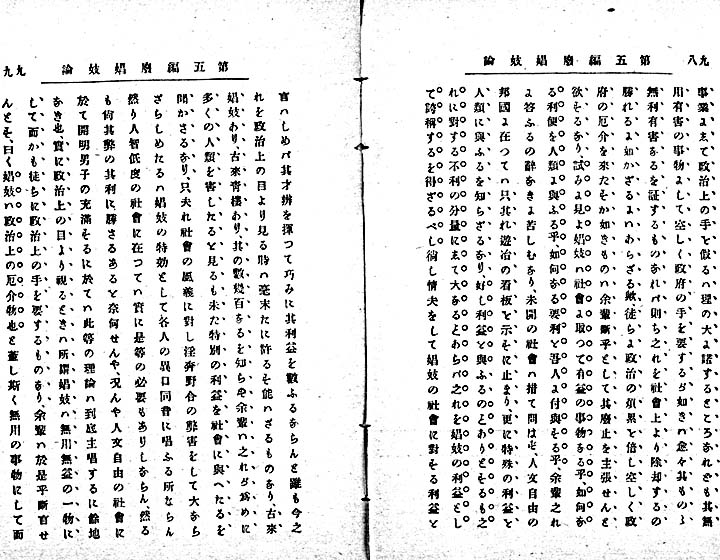 第五編廢娼妓論 九八
事業にまて政府の手を假るハ理の大よ謬するところあれとも其無
用有害の事物よして空しく政府の手を要するが如きハ愈々其もの丶
無利有害あるを証するものあれバ則ち之れを社會上より除却するの
勝れるよ如かざるよハあらざる歟、徒らよ政治の煩累を倍し空しく政
府の厄介を來たそか如きものハ余輩斷乎として其廢止を主張せんと
欲そるあり、試みよ見よ娼妓ハ社會よ取つて有益の事物あるか、如何あ
る利便を人類よ與ふる乎、如何ある要利を吾人よ付與そる乎、余輩之れ
よ答ふるの辭あきよ苦しむあり、未開の社會ハ措て問はず、人文自由の
邦國よ在つてハ只其れ遊冶の看板と示そに止まり、更に特殊の利益を
人類に與ふるを知らざるあり、好し利益を與ふるのとありとそるも之
れに對する不利の分量にまて大あるとあらバ之れを娼妓の利益とし
て誇稱するを得ざるべし、倘し情夫をして娼妓の社會に對そる利益を
第五編廢娼妓論 九九
言ハしめバ其才辨を揮つて巧みに其利益を數ふるあらんと雖も今之
れを政治上の目より見る時ハ毫末たに許るそ能ハざるものあり、古來
娼妓あり、古來靑樓あり、其の數幾百あるを知らず余輩ハ之れが爲めに
多くの人類を害したると見るも未た特別の利益を社會に與へたるを
聞かさるあり、只夫れ社會の風義に對し淫奔野合の弊害をして大あら
ざらしめたるハ娼妓の特効として各人の異口同音に唱ふる所ならん
然り人智低度の社會に在つてハ實に是等の必要もありしあらん、然る
も尙其弊の其利に勝さるあると奈何せんや、况んや人文自由の社會に
於て開明男子の充滿そるに於てハ此等の理論ハ到底主唱するに餘地
あき也、實に政治上の目より視るときハ所謂娼妓ハ無用無益の一物に
して而かも徒らに政治上の手を要するものあり、余輩ハ於是乎斷言せ
んとそ、曰く娼妓ハ政治上の厄介物也と蓋し斯く無用の事物にして而